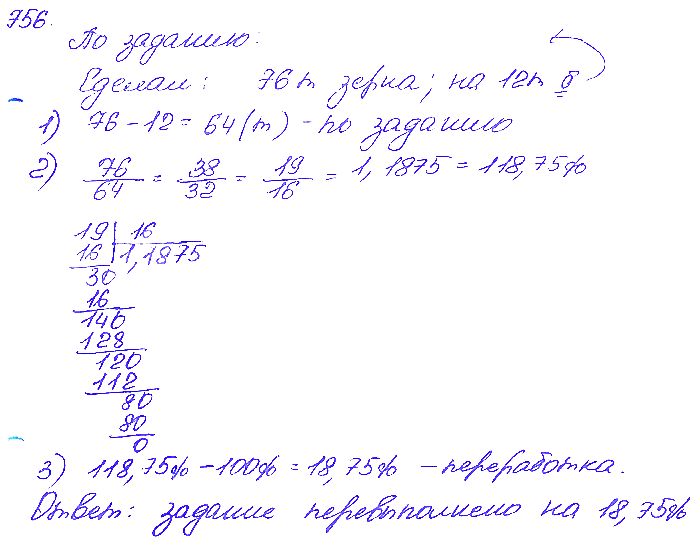 756.
По заданию:
Сделал: 76 т зерна; на 12 т б
1) 76 - 12 = 64 (т) - по заданию
2) 76/64 = 38/32 = 19/16 = 1,1875 = 118,75%
19 | 16
16 | 1,1875
30
16
140
128
120
112
80
80
0
3) 118,75% - 100% = 18,75% - переработка.
Ответ: задание перевыполнено на 18,75%